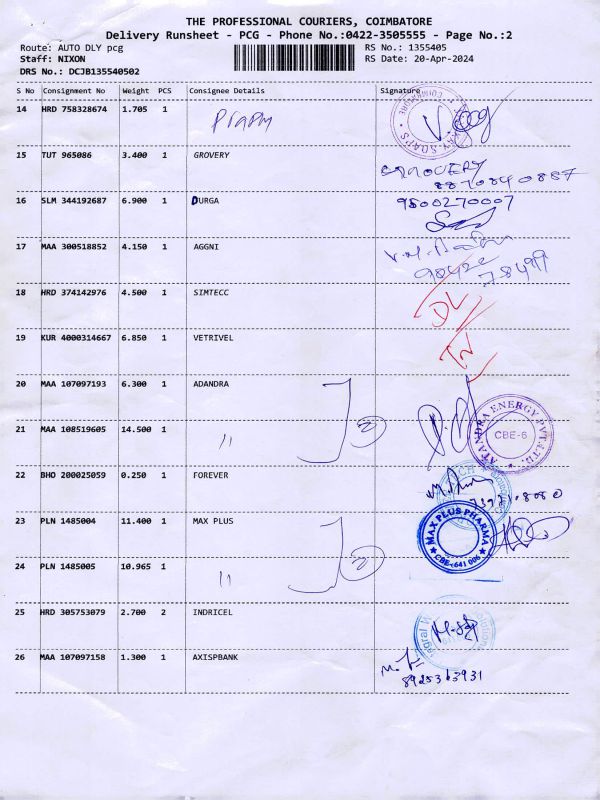 THE PROFESSIONAL COURIERS, COIMBATORE
Delivery Runsheet - PCG - Phone No.:0422-3505555 - Page No.:2
Route: AUTO DLY pcg RS No.: 1355405
Staff: NIXON RS Date: 20-Apr-2024
DRS No.: DCJB135540502
S No Consignment No Weight PCS Consignee Details Signature
14 HRD 758328674 1.705 1
15 TUT 965086 3.400 1 GROVERY
GROVERY
8870840887
16 SLM 344192687 6.900 1 DURGA 9500270007
17 MAA 300518852 4.150 1 AGGNI
18 HRD 374142976 4.500 1 SIMTECC DL
19 KUR 4000314667 6.850 1 VETRIVEL
20 MAA 107097193 6.300 1 ADANDRA
ATANDRA ENERGY PVT.LTD.
CBE-6
21 MAA 108519605 14.500 1 "
22 BHO 200025059 0.250 1 FOREVER
23 PLN 1485004 11.400 1 MAX PLUS
MAX PLUS PHARMA
CBE-641 006
24 PLN 1485005 10.965 1 "
25 HRD 305753079 2.700 2 INDRICEL
26 MAA 107097158 1.300 1 AXISPBANK
8925363931